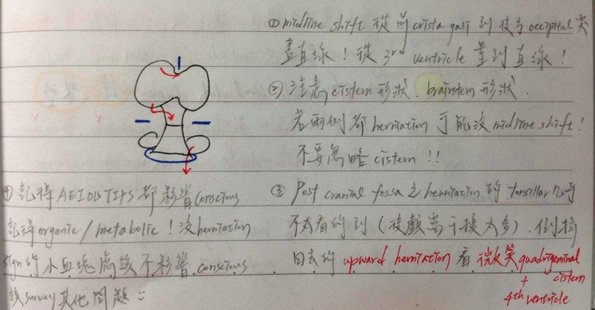 ① midline shift 從前 crista gali 到後去 occipital 尖
畫直線！從 3rd ventricle 量到直線！
② 注意 cistern 形狀. brainstem 形狀.
若兩側都 herniation 可能沒 midline shift!
不要忽略 cistern !!
③ Post cranial fossa 之 herniation 的 tonsillar
不太看的到 (後顱窩干擾太多). 但
回去的 upward herniation 看 微笑 quadrigeminal
cistern
+
4th ventricle
④ 記得 AEIOU TIPS 都影響 conscious
記得 organic / metabolic ! 沒 herniation
sign 的小血塊應該不影響 conscious
該 survey 其他問題